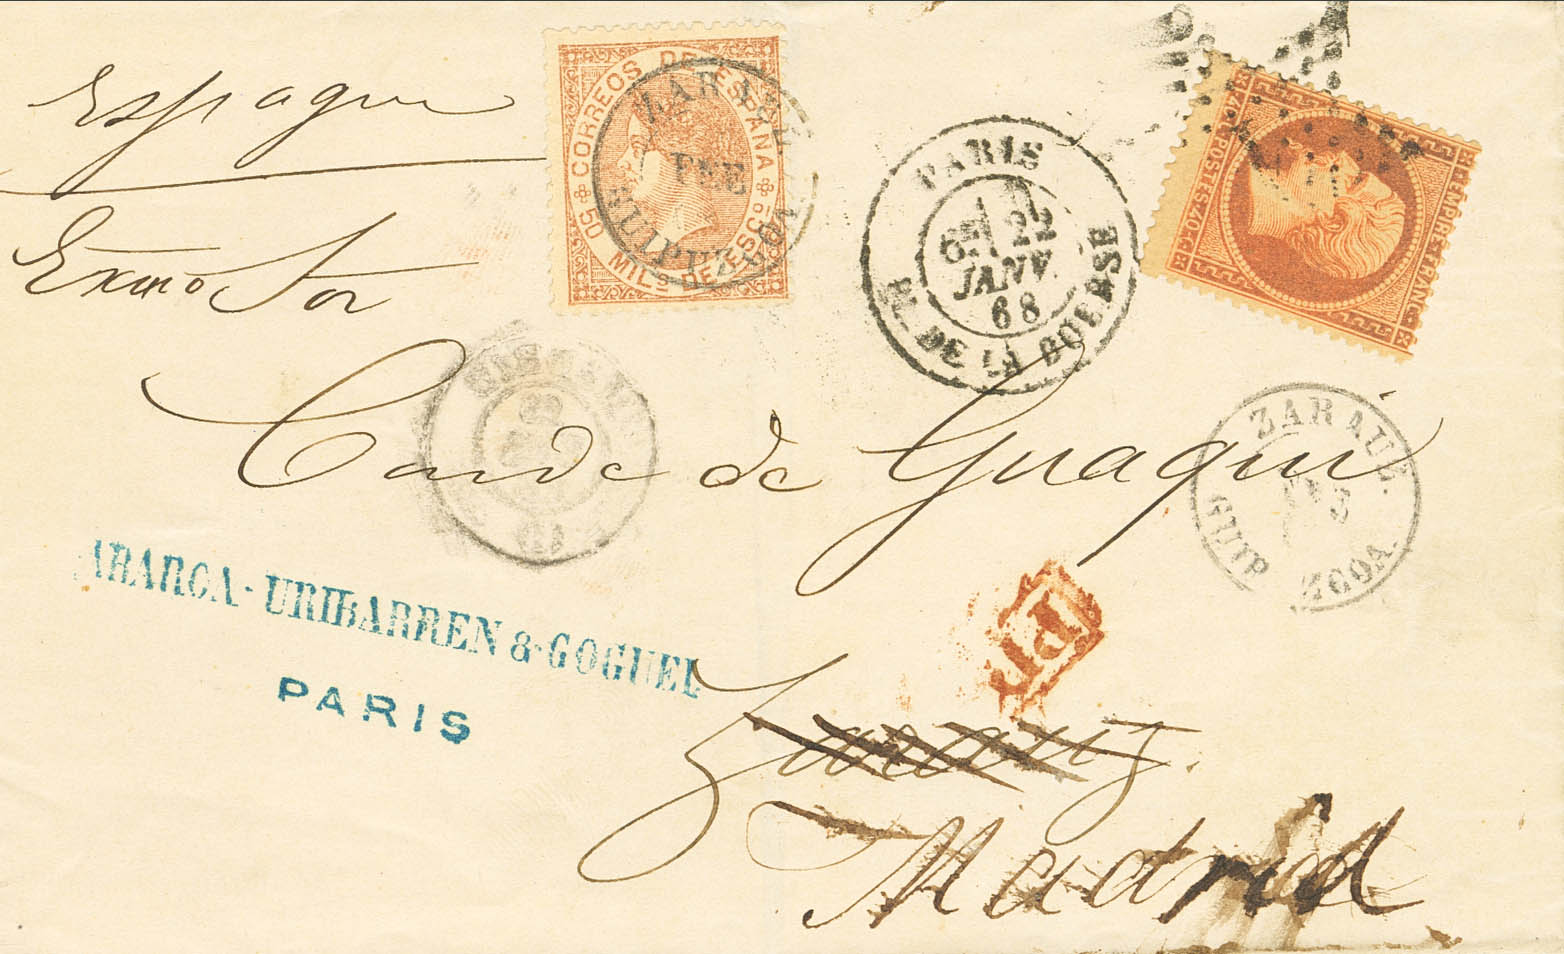 Espagne
Exmo Sor
Conde de Guaqui
Zarauz.
Madrid
CORREOS DE ESPAÑA
50 MILs DE ESCo
ZARAUZ
GUIPUZCOA.
PARIS
6E 22
JANV.
68
Pl. DE LA BOURSE
EMPIRE FRANC
40 POSTES 40
ZARAUZ.
GUIPUZCOA.
ABARCA-URIBARREN & GOGUEL
PARIS
PD